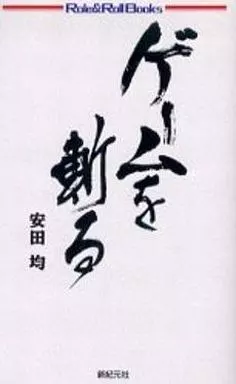 Role&Roll Books
ゲームを
斬る
安田 均
新紀元社